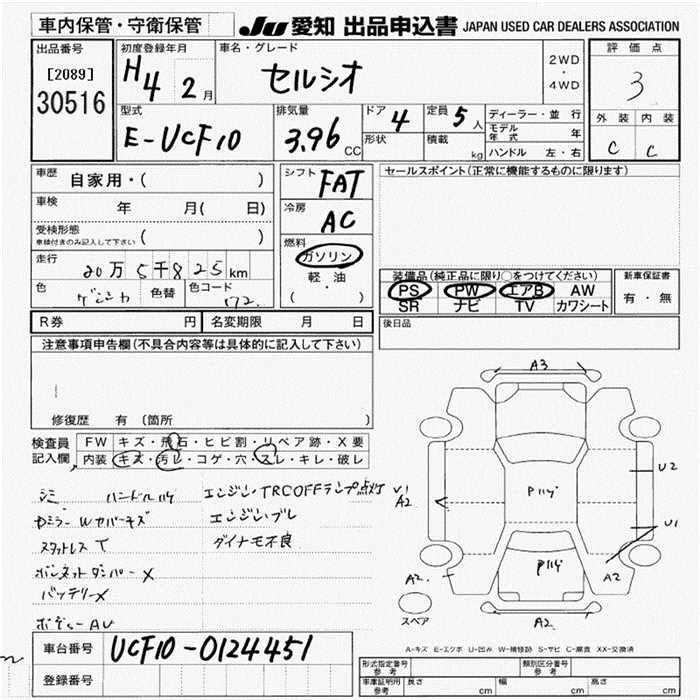 車内保管・守衛保管
JU 愛知 出品申込書 JAPAN USED CAR DEALERS ASSOCIATION
出品番号
[2089]
30516
初度登録年月
H4 2月
車名・グレード
セルシオ
2WD
・
4WD
評価点
3
外装 内装
C C
型式
E-UCF10
排気量
3.96 CC
ドア 4
形状
定員 5人
積載 kg
ディーラー・並行
モデル年式 年
ハンドル 左・右
車歴 自家用・( )
車検 年 月( 日)
受検形態
車検付きのみ記入して下さい ( )
走行
20万5千825km
色 色替 色コード
172
シフト FAT
冷房 AC
燃料
ガソリン
軽・油
( )
セールスポイント(正常に機能するものに限ります)
装備品(純正品に限り○をつけてください)
PS PW エアB AW
SR ナビ TV カワシート
新車保証書
有・無
後日品
R券 円 名変期限 月 日
注意事項申告欄(不具合内容等は具体的に記入して下さい)
修復歴 有 (箇所 )
検査員記入欄
FW キズ・飛石・ヒビ割・リペア跡・X要
内装 キズ・汚レ・コゲ・穴・スレ・キレ・破レ
シミ ハンドル エンジン・TRCOFFランプ点灯
エンジンブレ
スタットレス T ダイナモ不良
ボンネットダンパーX
バッテリーX
ボディーAU
A3
U2
U1
A2
A2
A2
A2
スペア
A-キズ E-エクボ U-凹み W-補修跡 S-サビ C-腐食 XX-交換済
車台番号 UCF10-0124451
登録番号
形式指定番号
参考
類別区分番号
参考
車庫証明用
参考
長さ cm 幅 cm 高さ cm